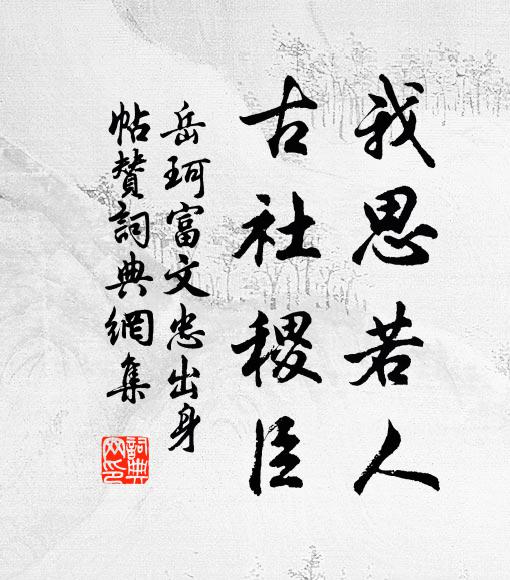 我思若人
古社稷臣
岳珂富文忠出身
帖贊詞典網集
詞典网印